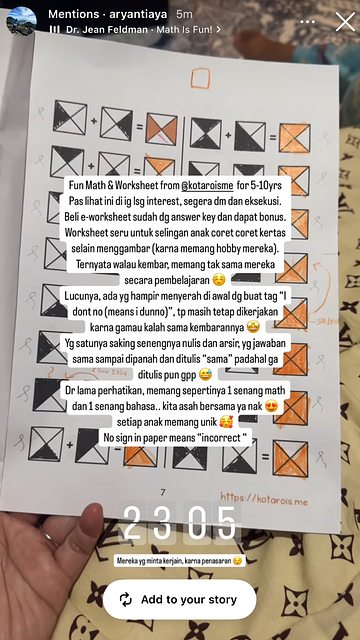 Mentions · aryantiaya 5m
Dr. Jean Feldman · Math Is Fun! >
Fun Math & Worksheet from @kotaroisme for 5-10yrs
Pas lihat ini di ig lsg interest, segera dm dan eksekusi.
Beli e-worksheet sudah dg answer key dan dapat bonus.
Worksheet seru untuk selingan anak coret coret kertas
selain menggambar (karna memang hobby mereka).
Ternyata walau kembar, memang tak sama mereka
secara pembelajaran ☺️
Lucunya, ada yg hampir menyerah di awal dg buat tag “I
dont no (means i dunno)”, tp masih tetap dikerjakan
karna gamau kalah sama kembarannya 🤩
Yg satunya saking senengnya nulis dan arsir, yg jawaban
sama sampai dipanah dan ditulis “sama” padahal ga
ditulis pun gpp 😅
Dr lama perhatikan, memang sepertinya 1 senang math
dan 1 senang bahasa.. kita asah bersama ya nak 😍
setiap anak memang unik 🥰
No sign in paper means “incorrect “
7
https://kotarois.me
2305
Mereka yg minta kerjain, karna penasaran 😏
Add to your story